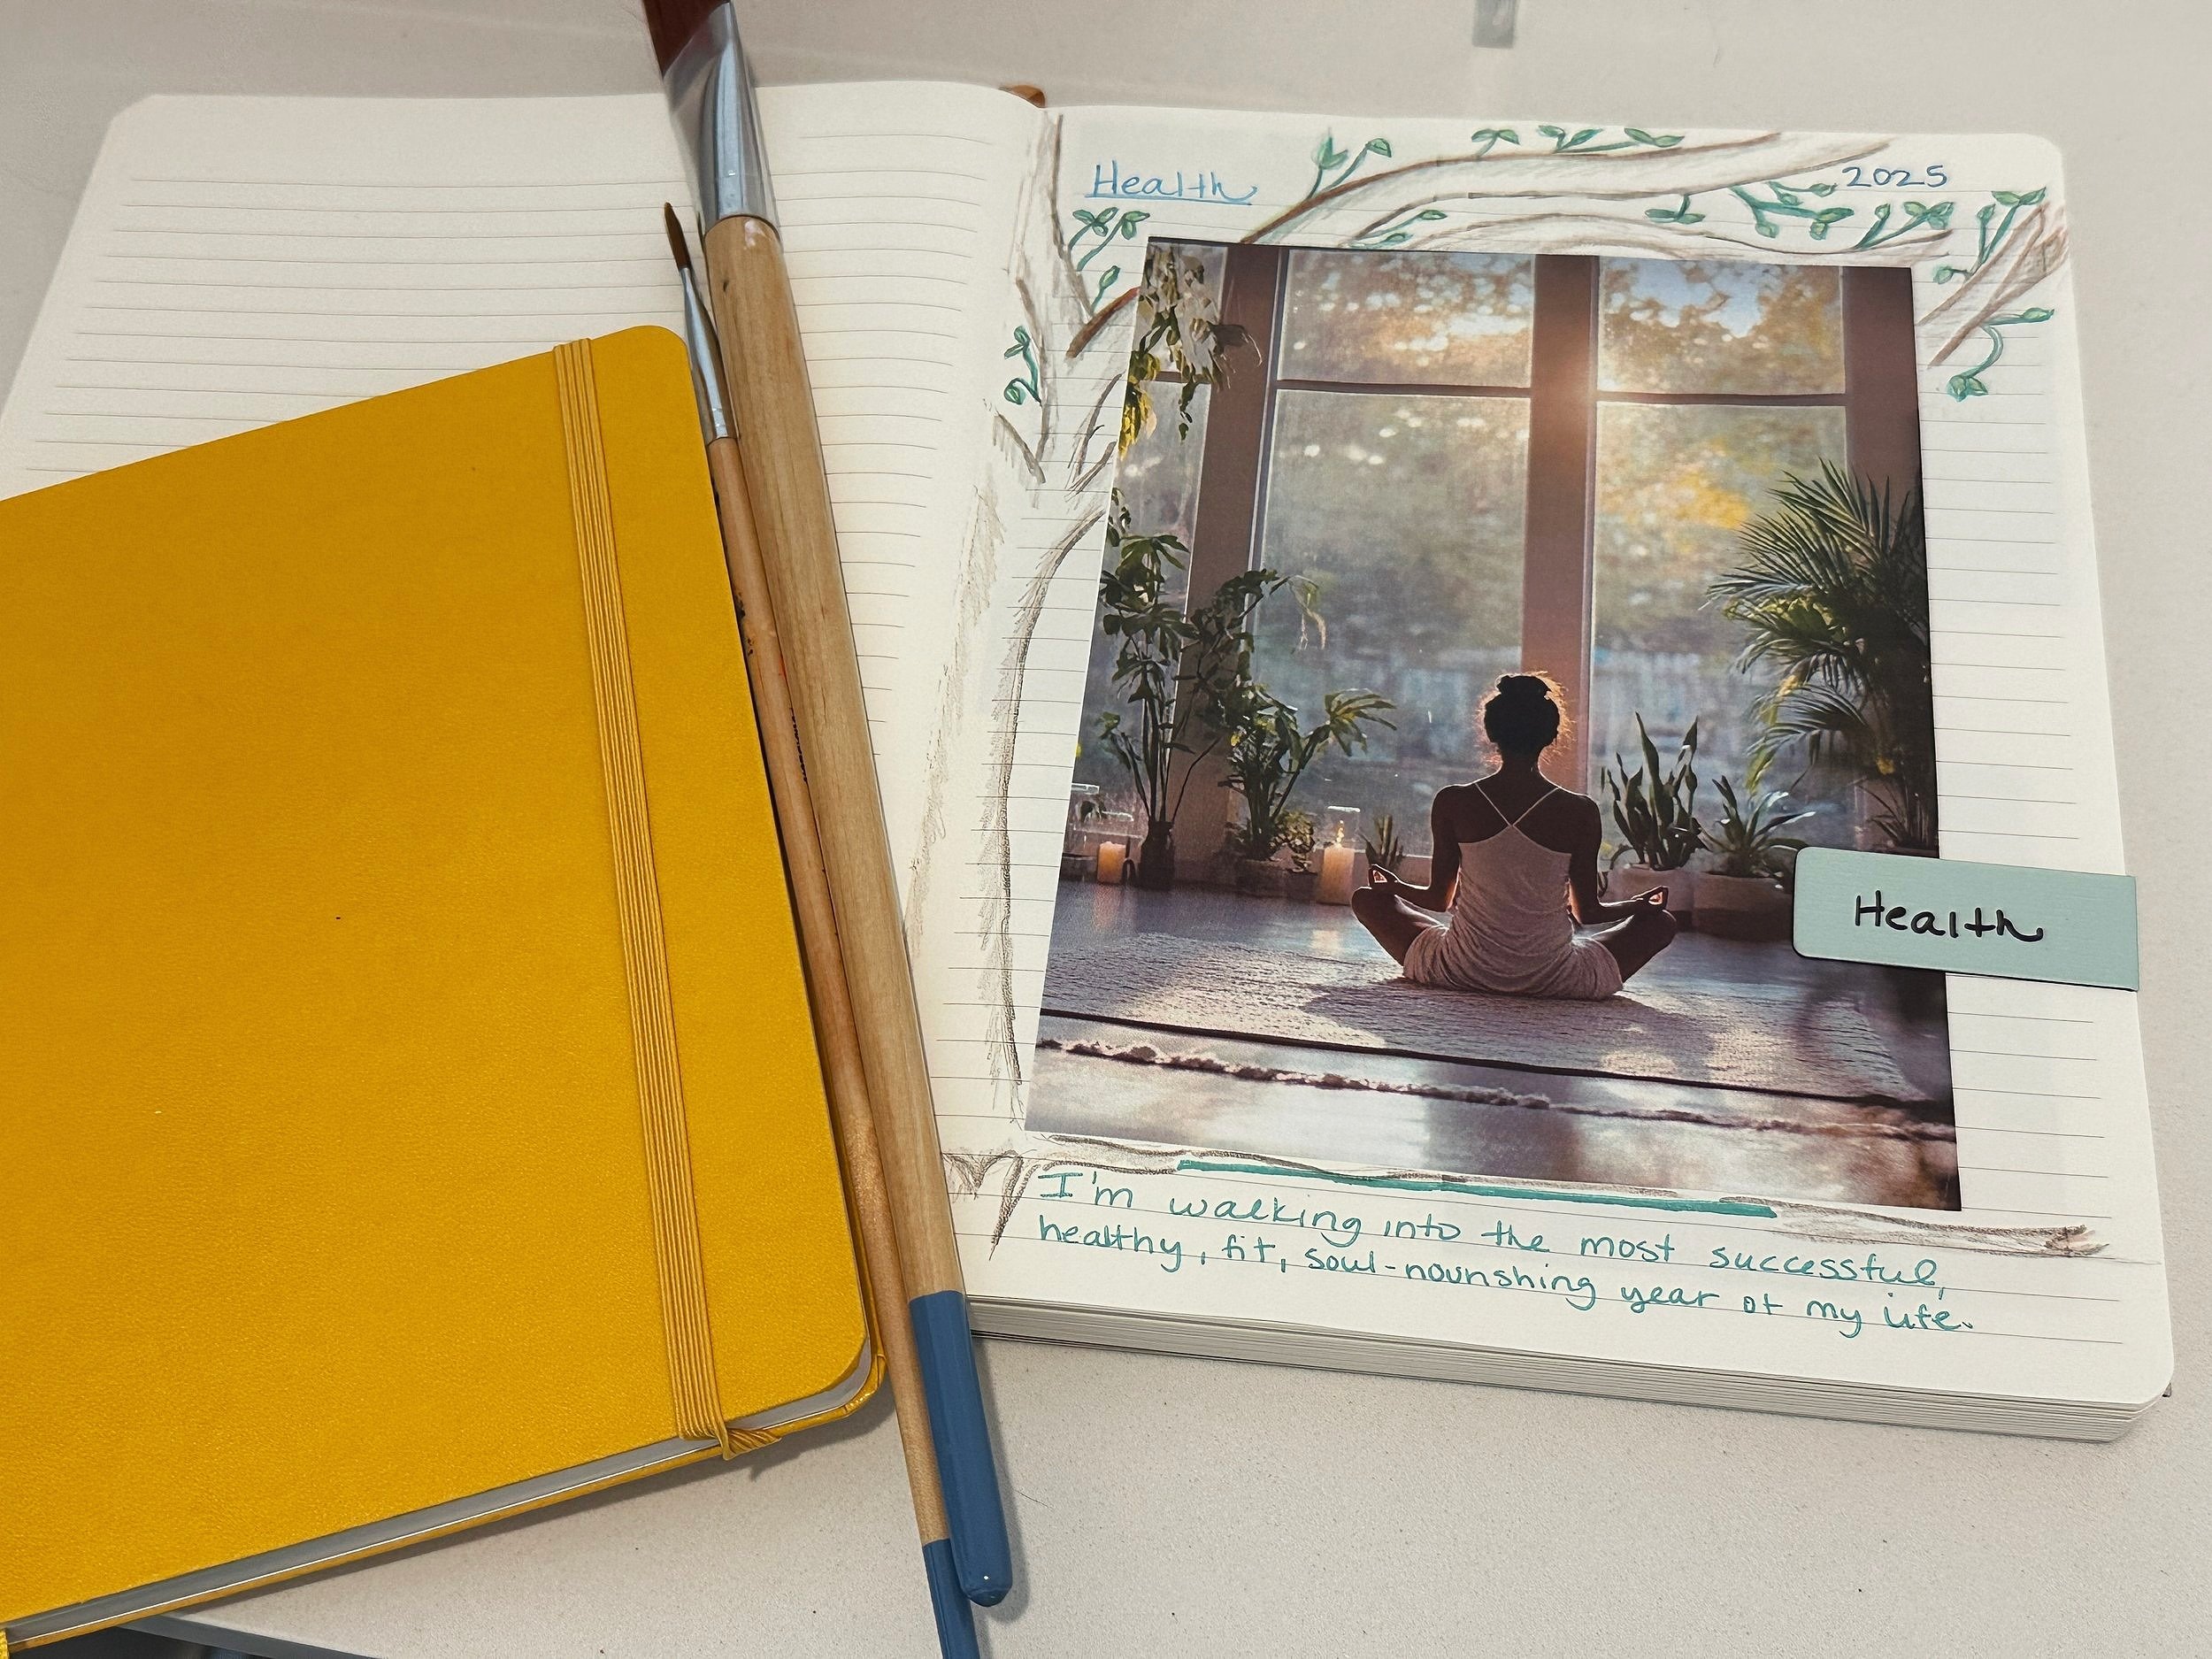 Health
2025
Health
I'm walking into the most successful,
healthy, fit, soul-nourishing year of my life.